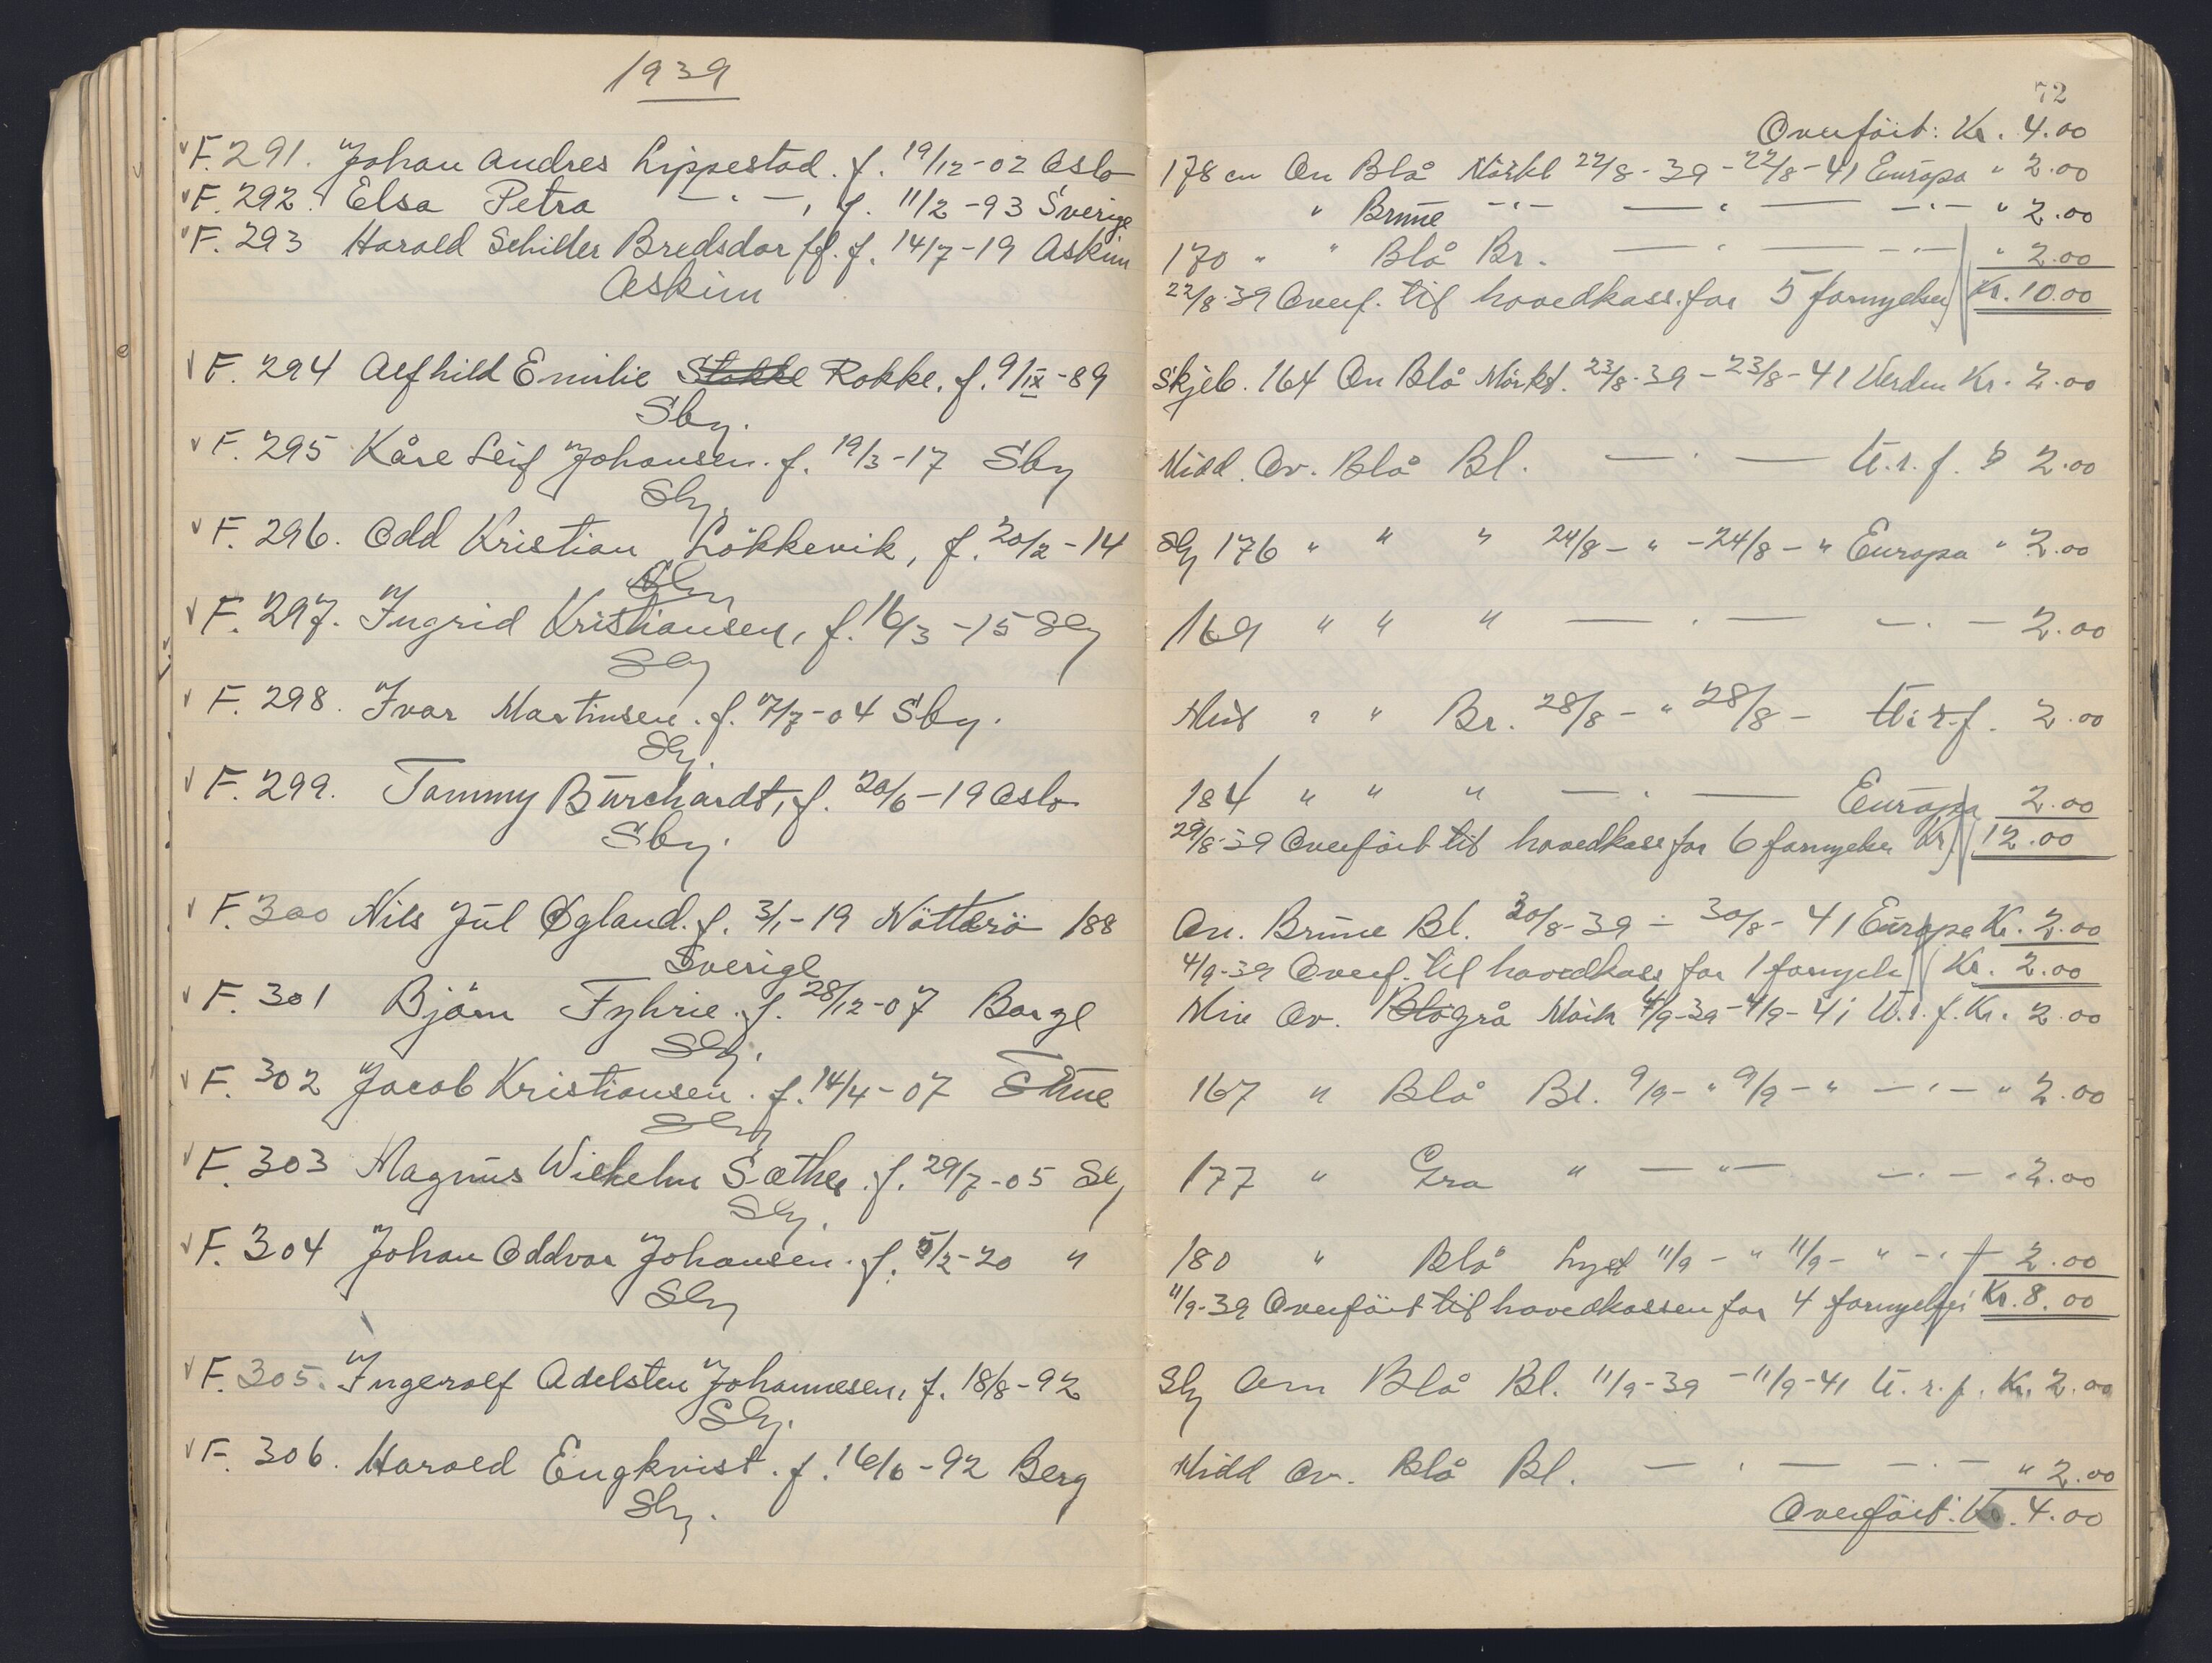 1939
F. 291. Johan Andres Lippestad. f. 19/12-02 Oslo
F. 292. Elsa Petra — " —, f. 11/2-93 Sverige
F. 293 Harald Schiller Bredsdorff. f. 14/7-19 Askim
Askim
F. 294 Alfhild Emilie Stokke Rokke. f. 9/IX-89
Sbg.
F. 295 Kåre Leif Johansen. f. 19/3-17 Sbg
Sbg.
F. 296. Odd Kristian Løkkevik, f. 20/2-14
Sbg
F. 297. Ingrid Kristiansen, f. 16/3-15 Sbg
Sbg
F. 298. Ivar Martinsen. f. 7/7-04 Sbg.
Sbg.
F. 299. Tommy Burchardt, f. 20/6-19 Oslo
Sbg.
F. 300 Nils Jul Øgland. f. 3/1-19 Nötterö 188
Sverige
F. 301 Björn Fyhrie. f. 28/12-07 Borge
Sbg.
F. 302 Jacob Kristiansen. f. 14/4-07
Sbg
F. 303 Magnus Wilhelm Sæther. f. 29/7-05 Sbg
Sbg.
F. 304 Johan Oddvar Johansen. f. 5/2-20 "
Sbg
F. 305. Ingerolf Adelsten Johannesen, f. 18/8-92
Sbg.
F. 306. Harald Engkvist. f. 16/6-92 Berg
Sbg.
72
Overført: Kr. 4.00
178 cm Ov Blå Mörkt 22/8-39-22/8-41 Europa " 2.00
" Brune - " - — " — - " - " 2.00
170 " " Blå Br. — " — - " - " 2.00
22/8-39 Overf. til hovedkass. for 5 fornyelser Kr. 10.00
Skjeb. 164 Ov Blå Mörkt. 23/8-39-23/8-41 Verden Kr. 2.00
Midd. Ov. Blå Bl. — " — U.r.f. " 2.00
Sbg 176 " " " 24/8- " -24/8- " Europa " 2.00
169 " " " — " — - " - 2.00
Mid " " Br. 28/8- " 28/8- U.r.f. 2.00
184 " " " — " — Europa 2.00
29/8-39 Overfört til hovedkass for 6 fornyelser Kr. 12.00
Ov. Brune Bl. 30/8-39 - 30/8-41 Europa Kr. 2.00
4/9-39 Overf. til hovedkass for 1 fornyelse Kr. 2.00
Ov. Blågrå Mörk 4/9-39-4/9-41 U.r.f. Kr. 2.00
167 " Blå Bl. 9/9- " 9/9- " - " - " 2.00
177 " Grå " — " — - " - " 2.00
180 " Blå Lyst 11/9- " 11/9- " - " - 2.00
11/9-39 Overfört til hovedkassen for 4 fornyelser Kr. 8.00
Sbg Ov Blå Bl. 11/9-39 -11/9-41 U.r.f. Kr. 2.00
Midd Ov. Blå Bl. — " — - " - " 2.00
Overfört: Kr. 4.00